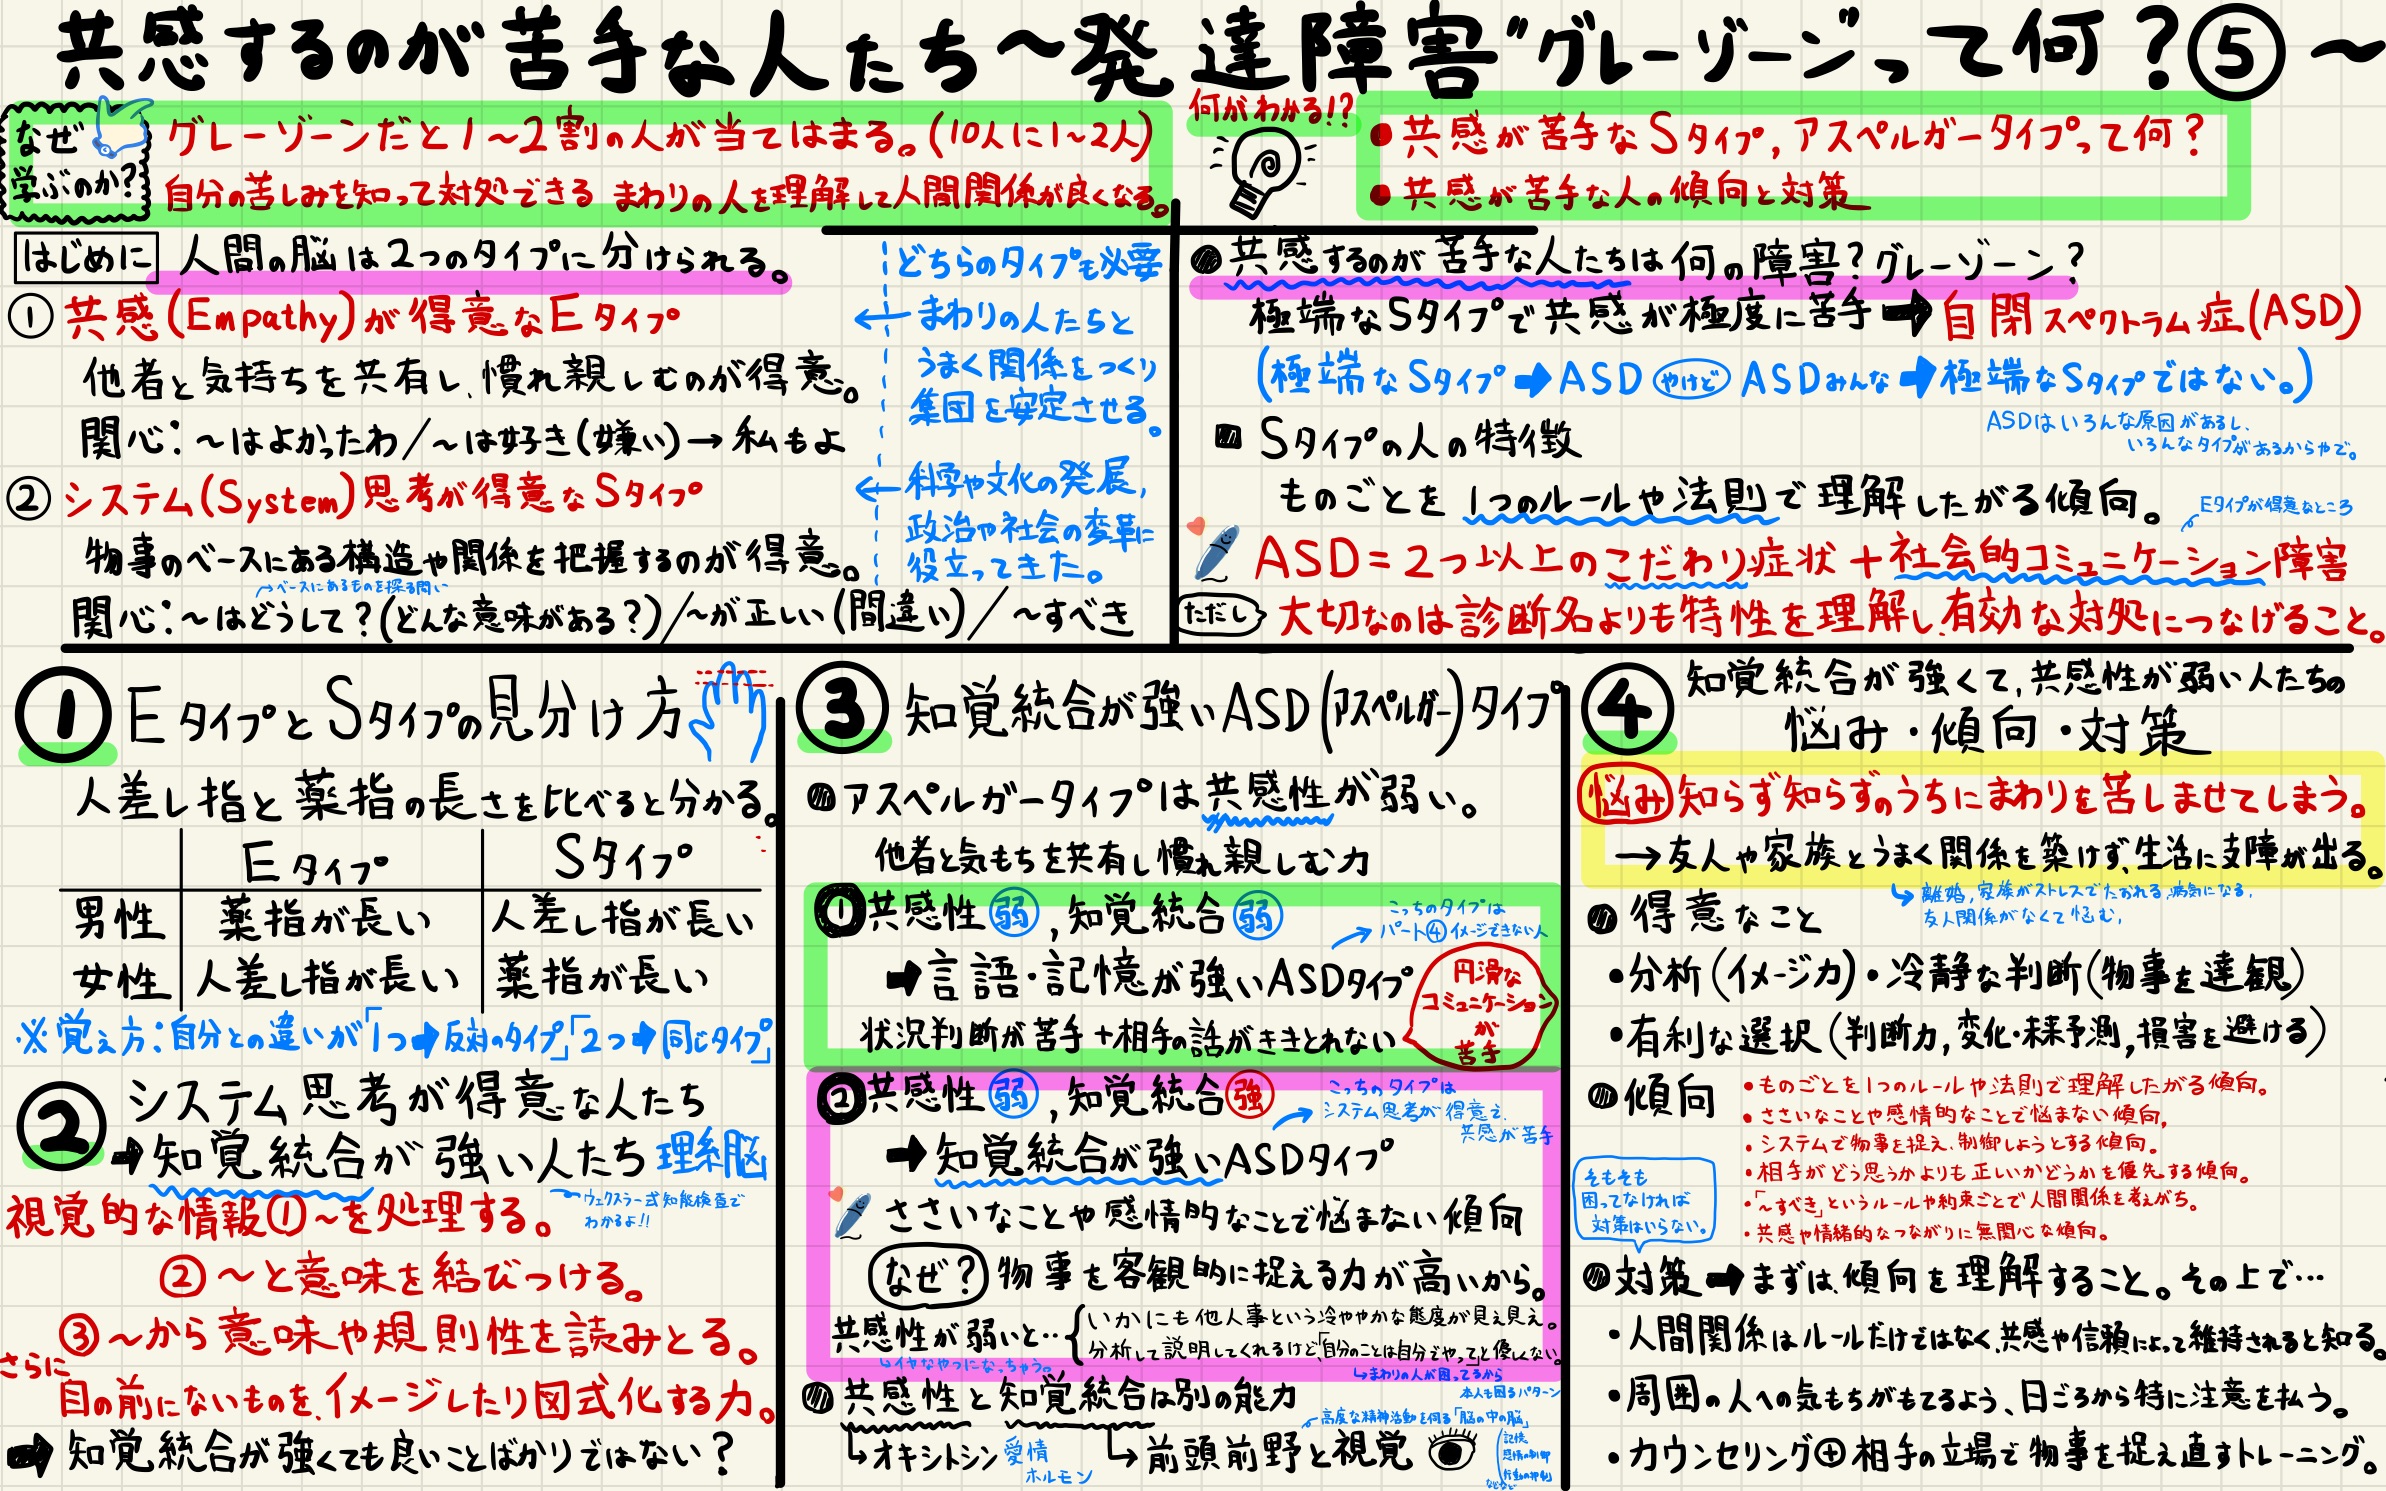 共感するのが苦手な人たち〜発達障害"グレーゾーン"って何？⑤〜
なぜ
学ぶのか？
グレーゾーンだと1〜2割の人が当てはまる。(10人に1〜2人)
自分の苦しみを知って対処できる まわりの人を理解して人間関係が良くなる。
何がわかる!?
●共感が苦手なSタイプ,アスペルガータイプって何？
●共感が苦手な人の傾向と対策
はじめに 人間の脳は2つのタイプに分けられる。
① 共感(Empathy)が得意なEタイプ
他者と気持ちを共有し、慣れ親しむのが得意。
関心：〜はよかったわ/〜は好き(嫌い)→私もよ
② システム(System)思考が得意なSタイプ
物事のベースにある構造や関係を把握するのが得意。
→ベースにあるものを探る問い
関心：〜はどうして？(どんな意味がある？)/〜が正しい(間違い)/〜すべき
どちらのタイプも必要
← まわりの人たちと
うまく関係をつくり
集団を安定させる。
← 科学や文化の発展,
政治や社会の変革に
役立ってきた。
共感するのが苦手な人たちは何の障害？グレーゾーン？
極端なSタイプで共感が極度に苦手➡自閉スペクトラム症(ASD)
(極端なSタイプ➡ASD やけど ASDみんな➡極端なSタイプではない。)
ASDはいろんな原因があるし、
いろんなタイプがあるからやで。
Sタイプの人の特徴
ものごとを1つのルールや法則で理解したがる傾向。
Eタイプが得意なところ
ASD＝2つ以上のこだわり症状＋社会的コミュニケーション障害
ただし 大切なのは診断名よりも特性を理解し、有効な対処につなげること。
① EタイプとSタイプの見分け方
人差し指と薬指の長さを比べると分かる。
Eタイプ Sタイプ
男性 薬指が長い 人差し指が長い
女性 人差し指が長い 薬指が長い
※覚え方：自分との違いが「1つ➡反対のタイプ」「2つ➡同じタイプ」
② システム思考が得意な人たち
➡知覚統合が強い人たち 理系脳
ウェクスラー式知能検査で
わかるよ!!
視覚的な情報①〜を処理する。
②〜と意味を結びつける。
③〜から意味や規則性を読みとる。
さらに
目の前にないものを、イメージしたり図式化する力。
➡知覚統合が強くても良いことばかりではない？
③ 知覚統合が強いASD(アスペルガー)タイプ
アスペルガータイプは共感性が弱い。
他者と気もちを共有し慣れ親しむ力
①共感性弱,知覚統合弱
こっちのタイプは
パート④イメージできない人
➡言語・記憶が強いASDタイプ
状況判断が苦手＋相手の話がききとれない
円滑な
コミュニケーション
が
苦手
②共感性弱,知覚統合強
こっちのタイプは
システム思考が得意で、
共感が苦手
➡知覚統合が強いASDタイプ
ささいなことや感情的なことで悩まない傾向
なぜ？ 物事を客観的に捉える力が高いから。
共感性が弱いと…
いかにも他人事という冷ややかな態度が見え見え。
分析して説明してくれるけど、「自分のことは自分でやって」と優しくない。
↳イヤなやつになっちゃう。
↳まわりの人が困ってるから
本人も困るパターン
共感性と知覚統合は別の能力
↳オキシトシン 愛情
ホルモン
高度な精神活動を伺る「脳の中の脳」
↳前頭前野と視覚
記憶
感情の制御
行動の抑制
などなど
④ 知覚統合が強くて,共感性が弱い人たちの
悩み・傾向・対策
悩み 知らず知らずのうちにまわりを苦しませてしまう。
→友人や家族とうまく関係を築けず、生活に支障が出る。
↳離婚,家族がストレスでたおれる,病気になる,
友人関係がなくて悩む,
得意なこと
・分析(イメージ力)・冷静な判断(物事を達観)
・有利な選択(判断力,変化・未来予測,損害を避ける)
傾向
・ものごとを1つのルールや法則で理解したがる傾向。
・ささいなことや感情的なことで悩まない傾向,
・システムで物事を捉え、制御しようとする傾向。
・相手がどう思うかよりも正しいかどうかを優先する傾向。
・「〜すべき」というルールや約束ごとで人間関係を考えがち。
・共感や情緒的なつながりに無関心な傾向。
そもそも
困ってなければ
対策はいらない。
対策➡まずは、傾向を理解すること。その上で…
・人間関係はルールだけではなく、共感や信頼によって維持されると知る。
・周囲の人への気もちがもてるよう、日ごろから特に注意を払う。
・カウンセリング⊕相手の立場で物事を捉え直すトレーニング。